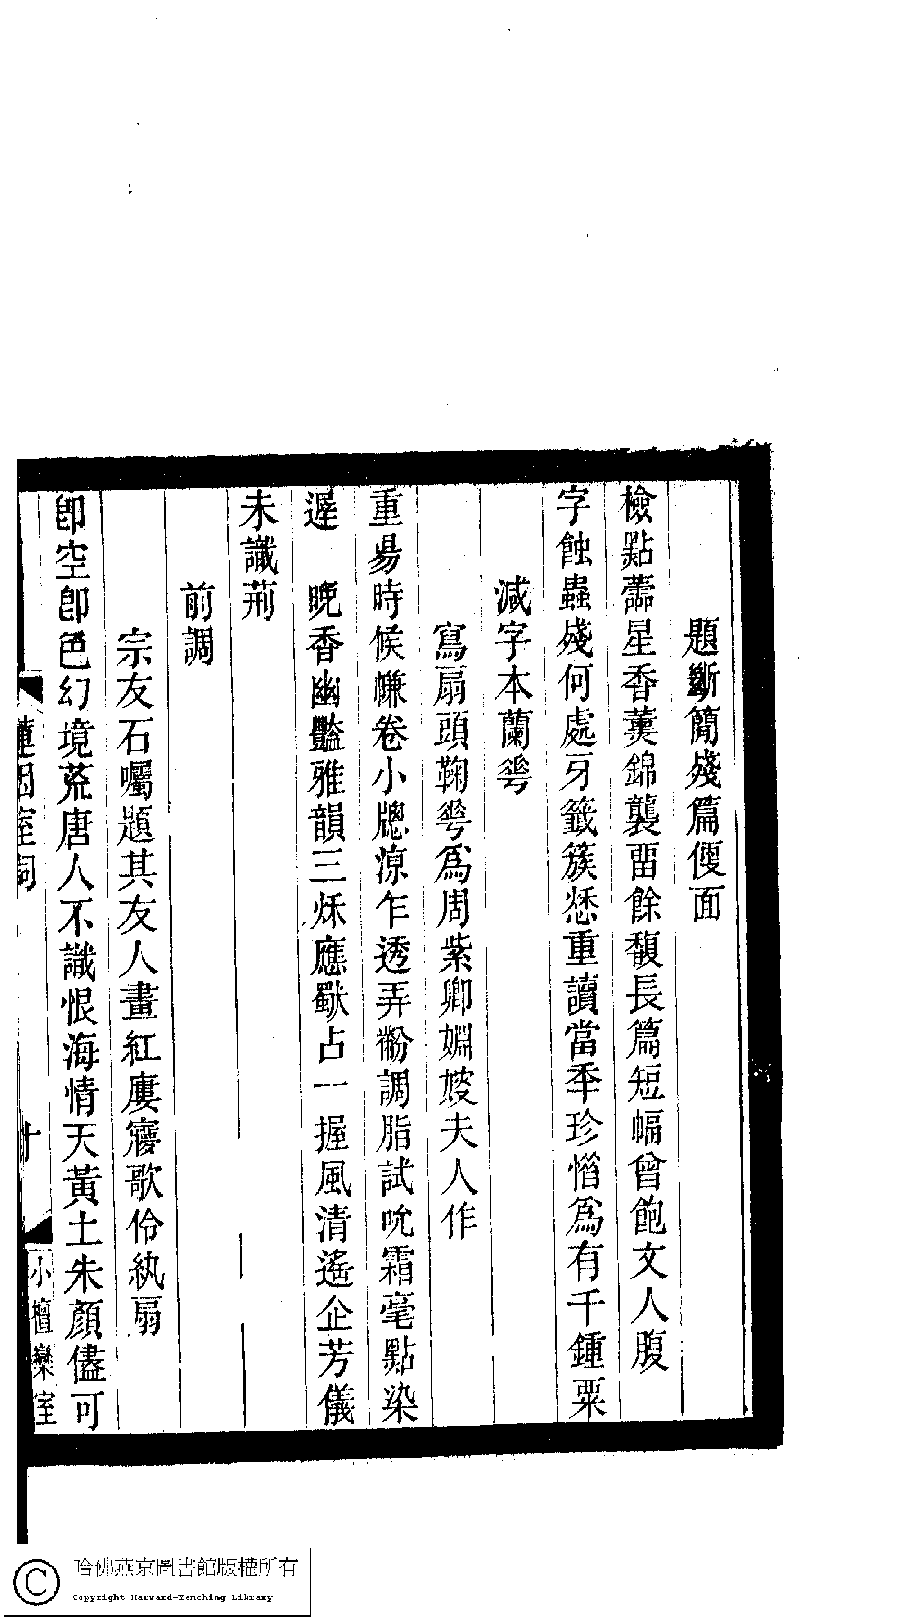 題斷簡殘篇便面
檢點蠹星香薰錦襲畱餘馥長篇短幅曾飽文人腹
字蝕蟲殘何處牙籤簇愁重讀當秊珍惜爲有千鍾粟
減字木蘭蕐
寫扇頭鞠蕐爲周紫卿婣嫂夫人作
重昜時候㡘卷小牕涼乍透弄粉調脂試吮霜毫點染
遲　晚香幽豔雅韻三秌應獨占一握風清遙企芳儀
未識荊
前調
宗友石囑題其友人畫紅廔寱歌伶紈扇
卽空卽色幻境荒唐人不識恨海情天黃土朱顏儘可
蓮因室詞
十
小檀欒室
哈佛燕京圖書館版權所有
Copyright Harvard-Yenching Library